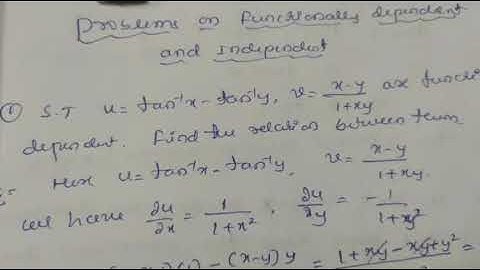 Problems on functionally dependent
and Independent
① S.T u = tan⁻¹x - tan⁻¹y, v = x-y/1+xy are functi
dependent. Find the relation between tem
Here u = tan⁻¹x - tan⁻¹y, v = x-y/1+xy.
we have ∂u/∂x = 1/1+x², ∂u/∂y = -1/1+y²
-(x-y)y = 1+xy-xy+y² =